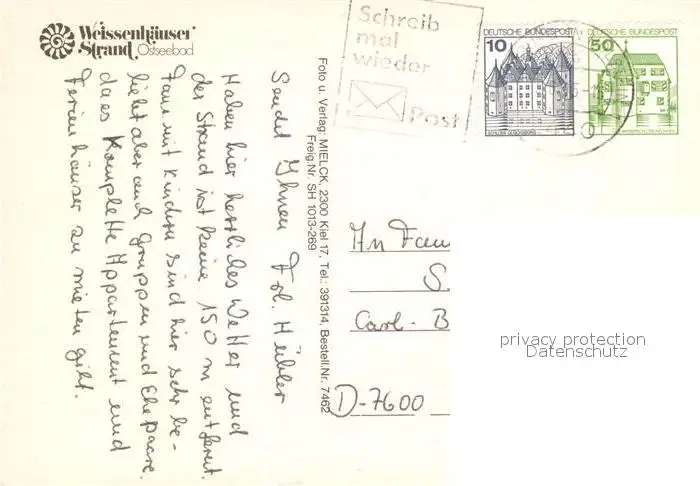 Weissenhäuser
Strand Ostseebad
Schreib
mal
wieder
Post
DEUTSCHE BUNDESPOST
10
SCHLOSS GLÜCKSBURG
DEUTSCHE BUNDESPOST
50
Haben hier herrliches Wetter und
der Strand ist keine 150 m entfernt.
Fam. mit Kindern sind hier sehr be-
liebt aber auch Gruppen und Ehepaare.
da es komplette Appartement und
Ferienhäuser zu mieten gibt.
Sendet Ihnen Frl. Hübler
Foto u. Verlag: MIELCK, 2300 Kiel 17, Tel.: 391314, Bestell.Nr. 7462
Freig.Nr. SH 1013-269
An Fam
S.
Carl- B
D-7600
privacy protection
Datenschutz